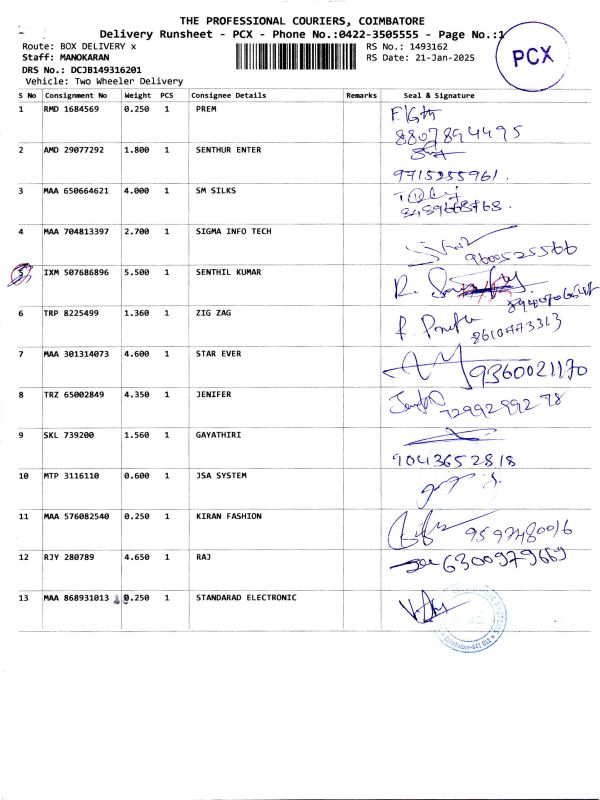 THE PROFESSIONAL COURIERS, COIMBATORE
Delivery Runsheet - PCX - Phone No.:0422-3505555 - Page No.:1
Route: BOX DELIVERY x RS No.: 1493162
Staff: MANOKARAN RS Date: 21-Jan-2025
DRS No.: DCJB149316201
Vehicle: Two Wheeler Delivery
PCX
S No Consignment No Weight PCS Consignee Details Remarks Seal & Signature
1 RMD 1684569 0.250 1 PREM
8807894495
2 AMD 29077292 1.800 1 SENTHUR ENTER
9715255961.
3 MAA 650664621 4.000 1 SM SILKS
4 MAA 704813397 2.700 1 SIGMA INFO TECH
9600525566
5 IXM 507686896 5.500 1 SENTHIL KUMAR
6 TRP 8225499 1.360 1 ZIG ZAG
8610773313
7 MAA 301314073 4.600 1 STAR EVER
9360021170
8 TRZ 65002849 4.350 1 JENIFER
7299299278
9 SKL 739200 1.560 1 GAYATHIRI
9043652818
10 MTP 3116110 0.600 1 JSA SYSTEM
11 MAA 576082540 0.250 1 KIRAN FASHION
9597480016
12 RJY 280789 4.650 1 RAJ
6300979669
13 MAA 868931013 0.250 1 STANDARAD ELECTRONIC